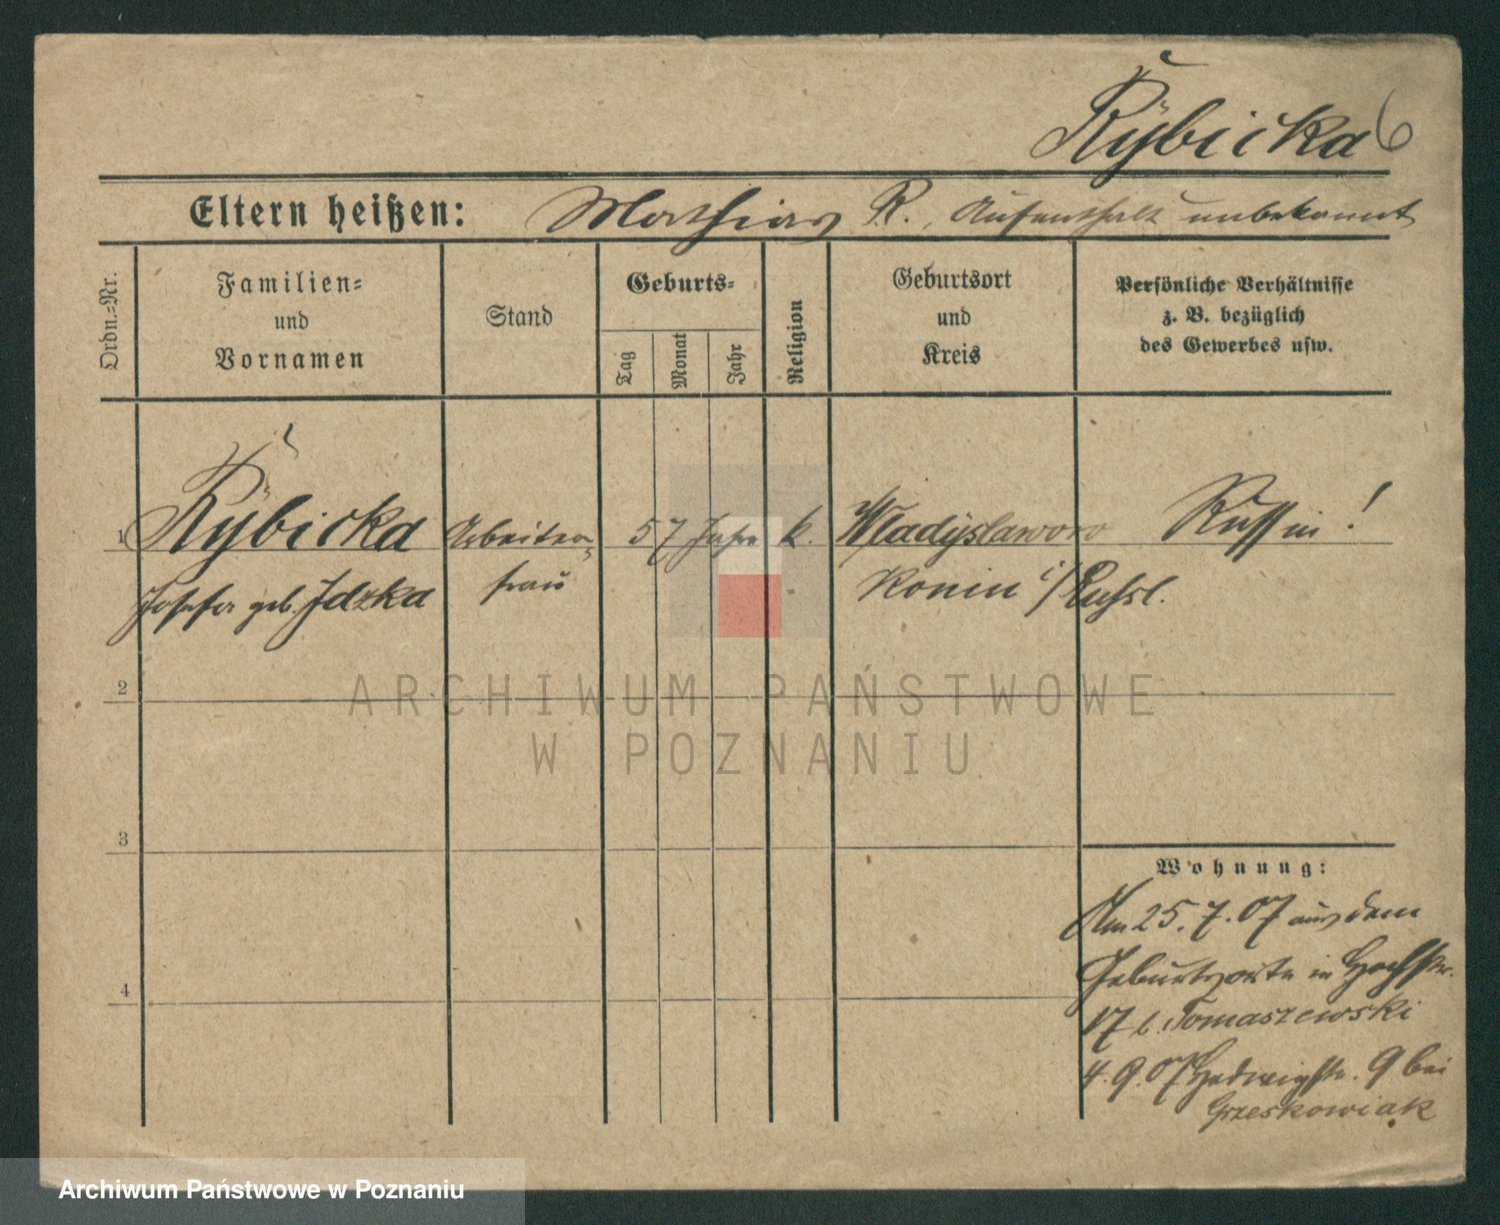 Rÿbicka 6
Eltern heißen: Mathias R., Aufenthalt unbekannt
Ordn.-Nr.
Familien-
und
Vornamen
Stand
Geburts-
Tag
Monat
Jahr
Religion
Geburtsort
und
Kreis
Persönliche Verhältnisse
z. B. bezüglich
des Gewerbes usw.
1 Rÿbicka Arbeiter- 57 Jahre k. Wladÿslawowo Russin!
Josefa geb. Idzka frau Konin i/Russl.
2
ARCHIWUM PAŃSTWOWE
W POZNANIU
3
Wohnung:
Am 25.7.07 aus dem
Geburtsorte in Hochstr.
17 b. Tomaszewski
4
4.9.07 Hedwigstr. 9 bei
Grzeskowiak
Archiwum Państwowe w Poznaniu